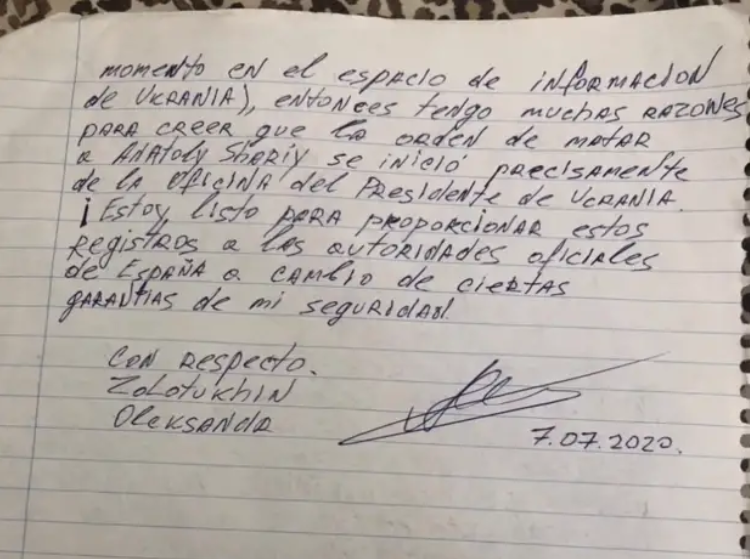 momento en el espacio de información
de Ucrania), entonces tengo muchas razones
para creer que la orden de matar
a Anatoly Shariy se inició precisamente
de la Oficina del Presidente de Ucrania.
¡Estoy listo para proporcionar estos
registros a las autoridades oficiales
de España a cambio de ciertas
garantias de mi seguridad.
Con respecto.
Zolotukhin
Oleksandr
7.07.2020.